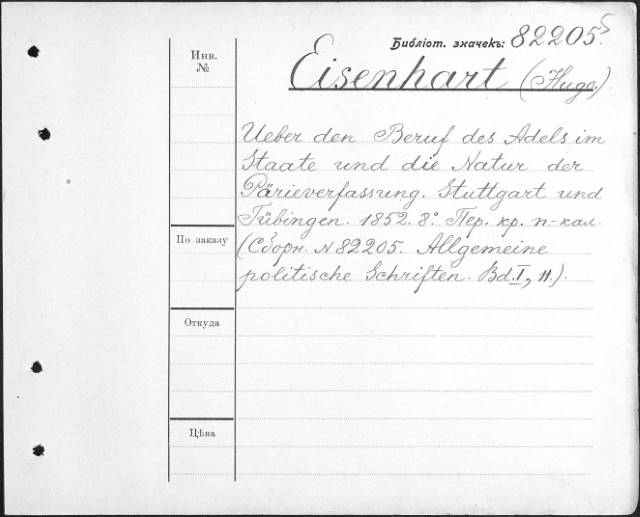 Библіот. значекъ: 82205⁵
Инв.
№
Eisenhart (Hugo).
Ueber den Beruf des Adels im
Staate und die Natur der
Pärieverfassung. Stuttgart und
Tübingen. 1852. 8° Пер. кр. п-кал.
По заказу
(Сборн. № 82205. Allgemeine
politische Schriften. Bd. I, 11).
Откуда
Цѣна